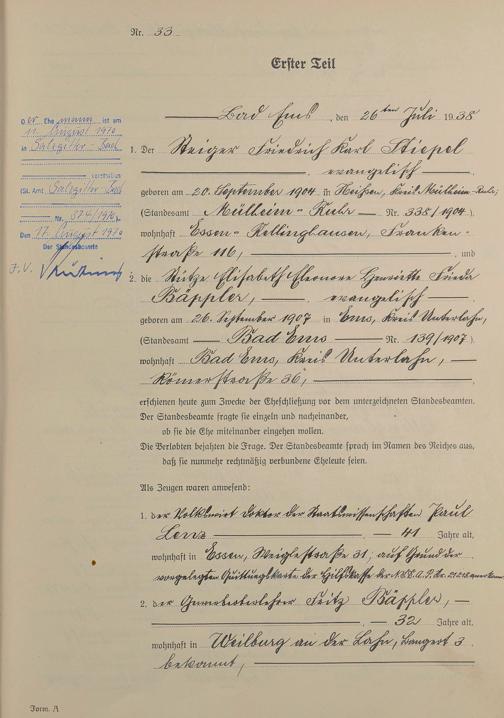 Nr. 33
Erster Teil
Bad Ems, den 26ten Juli 1938
Der Ehemann ist am
11. August 1970
in Salzgitter-Bad
verstorben
(St. Amt Salzgitter-Bad
Nr. 374/1970)
Den 17. August 1970
Der Standesbeamte
J. V.
1. Der Steiger Friedrich Karl Stiepel
evangelisch
geboren am 20. September 1904 in Heißen, Kreis Mülheim-Ruhr,
(Standesamt Mülheim-Ruhr Nr. 335/1904)
wohnhaft Essen-Rellinghausen, Franken-
straße 116, und
2. die Stütze Elisabeth Eleonore Henriette Frieda
Bäppler, evangelisch
geboren am 26. September 1907 in Ems, Kreis Unterlahn,
(Standesamt Bad Ems Nr. 139/1907)
wohnhaft Bad Ems, Kreis Unterlahn,
Römerstraße 36,
erschienen heute zum Zwecke der Eheschließung vor dem unterzeichneten Standesbeamten.
Der Standesbeamte fragte sie einzeln und nacheinander,
ob sie die Ehe miteinander eingehen wollen.
Die Verlobten bejahten die Frage. Der Standesbeamte sprach im Namen des Reiches aus,
daß sie nunmehr rechtmäßig verbundene Eheleute seien.
Als Zeugen waren anwesend:
1. der Volkswirt Doktor der Staatswissenschaften Paul
Lenz 41 Jahre alt,
wohnhaft in Essen, Weiglestraße 31, auf Grund der
vorgelegten Quittungskarte der Hilfskasse der N.S.D.A.P. Nr.
2. der Gewerbeoberlehrer Fritz Bäppler,
32 Jahre alt,
wohnhaft in Weilburg an der Lahn, Langert 3
bekannt,
Form. A